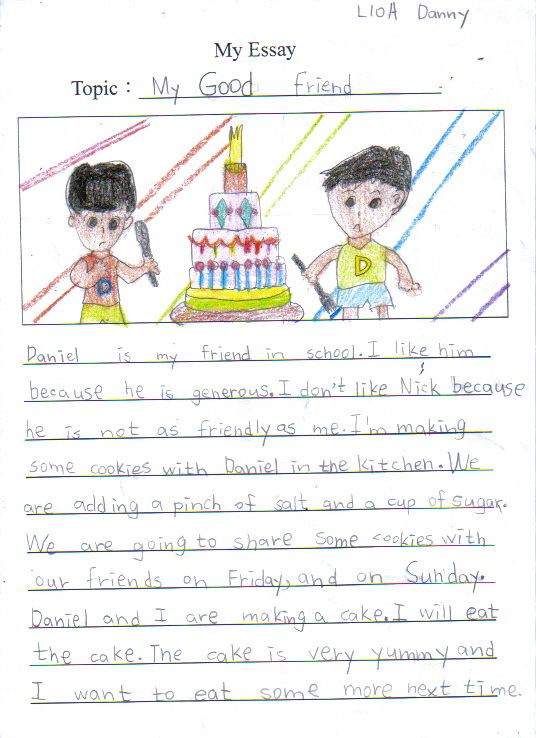 L10A Danny
My Essay
Topic : My Good friend
D
D
Daniel is my friend in school. I like him
because he is generous. I don't like Nick because
he is not as friendly as me. I'm making
some cookies with Daniel in the kitchen. We
are adding a pinch of salt and a cup of sugar.
We are going to share some cookies with
our friends on Friday, and on Sunday.
Daniel and I are making a cake. I will eat
the cake. The cake is very yummy and
I want to eat some more next time.